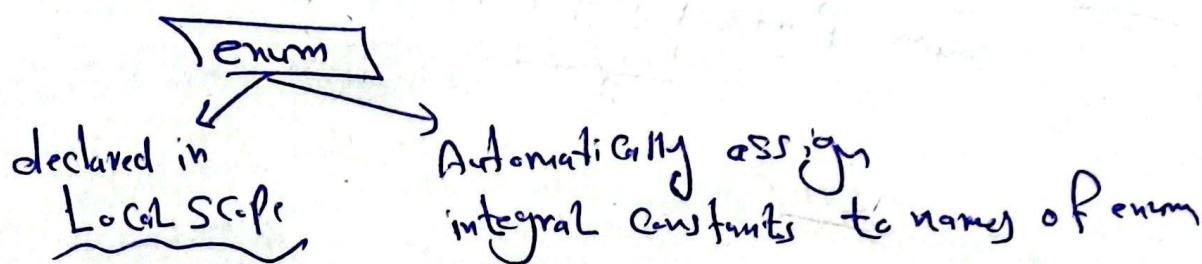 enum
declared in
Local Scope
Automatically assign
integral constants to names of enum